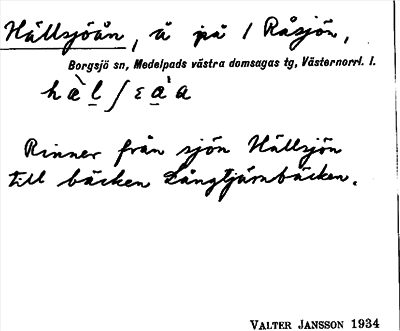 Hällsjöån, å på / Råsjön,
Borgsjö sn, Medelpads västra domsagas tg, Västernorrl. l.
Rinner från sjön Hällsjön
till bäcken Långtjärnbäcken.
VALTER JANSSON 1934